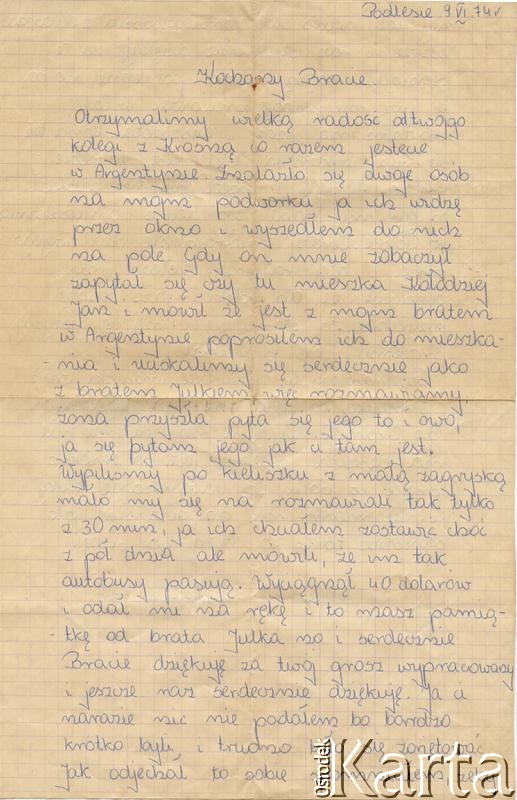 Podlesie 9 VI. 74 r
Kochany Bracie.
Otrzymalimy wielką radość od twojgo
kolegi z Krosną co razem jestecie
w Argentynie. Znalazło się dwoje osób
na mojm podworku ja ich widzę
przez okno i wyszedłem do nich
na pole Gdy on mnie zobaczył
zapytał się czy tu mieszka Kołodziej
Jan i mówił że jest z mojm bratem
w Argentynie poprosiłem ich do mieszka-
-nia i uciskalimy się serdecznie jako
z bratem Julkiem więc rozmawiamy,
żona przyszła pyta się jego to i owo,
ja się pytam jego jak u tam jest.
Wypilismy po kieliszku z małą zagryską
mało my się na rozmawiali tak tylko
z 30 min, ja ich chciałem zostawić choć
z pół dnia ale mówili, że im tak
autobusy pasują. Wyciągnął 40 dolarów
i odał mi na rękę i to masz pamią-
-tkę od brata Julka no i serdecznie
Bracie dziękuję za twój grosz wypracowany
i jeszcze raz serdecznie dziękuję. Ja u
narazie nic nie podałem bo bardzo
krótko byli, i trudno było się
Jak odjechał to sobie
Ośrodek
Karta